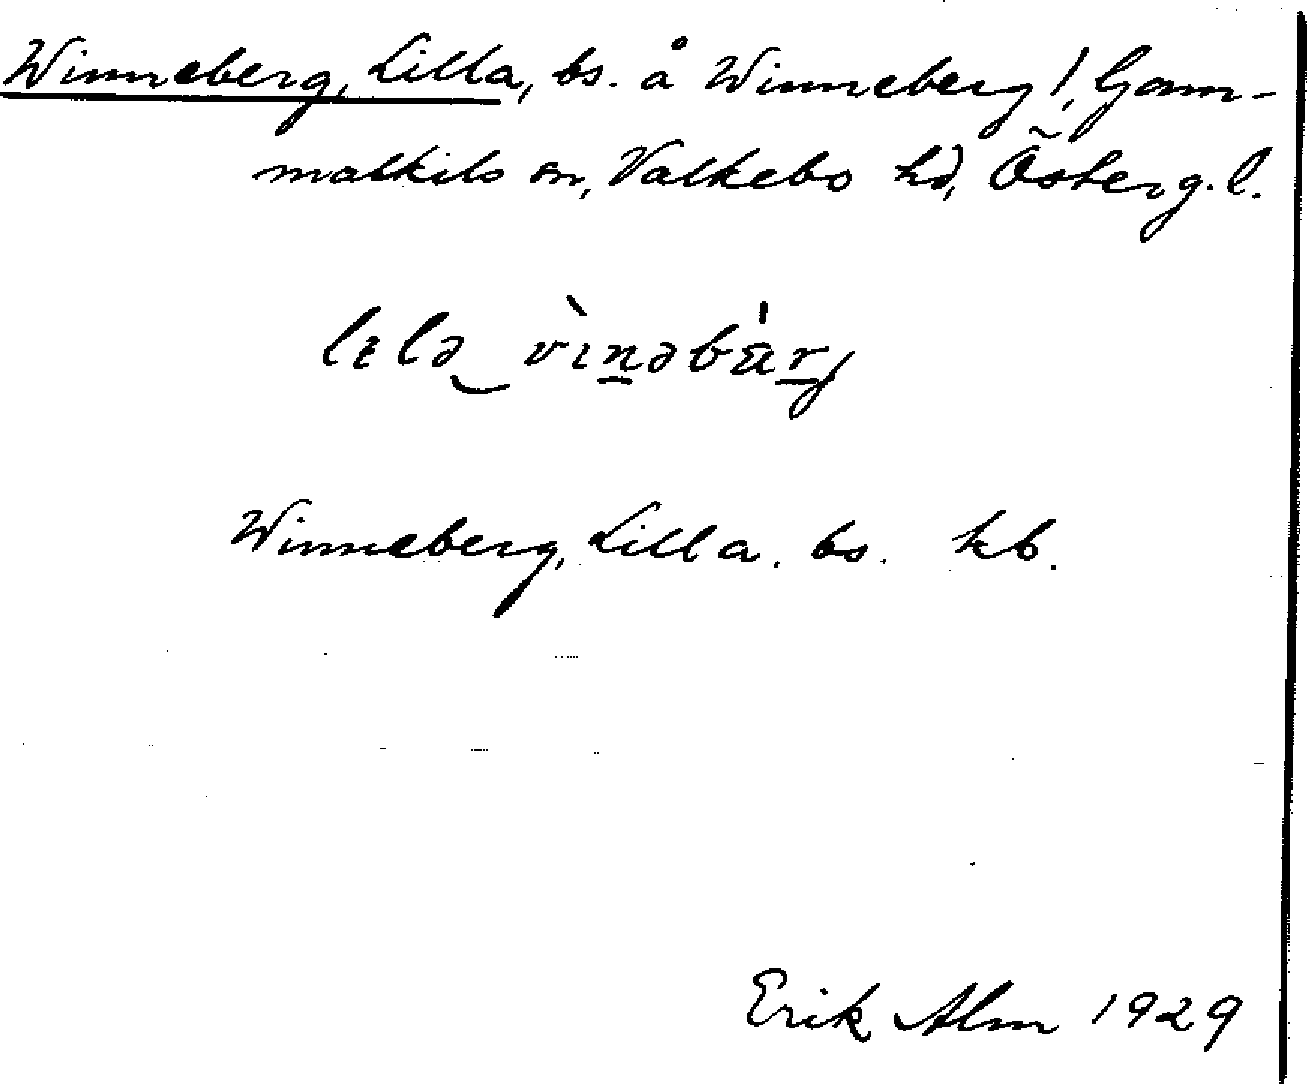 Winneberg, Lilla, bs. å Winneberg 1, Gam-
malkils sn, Valkebo hd, Österg. l.
Winneberg, Lilla. bs. kb.
Erik Alm 1929